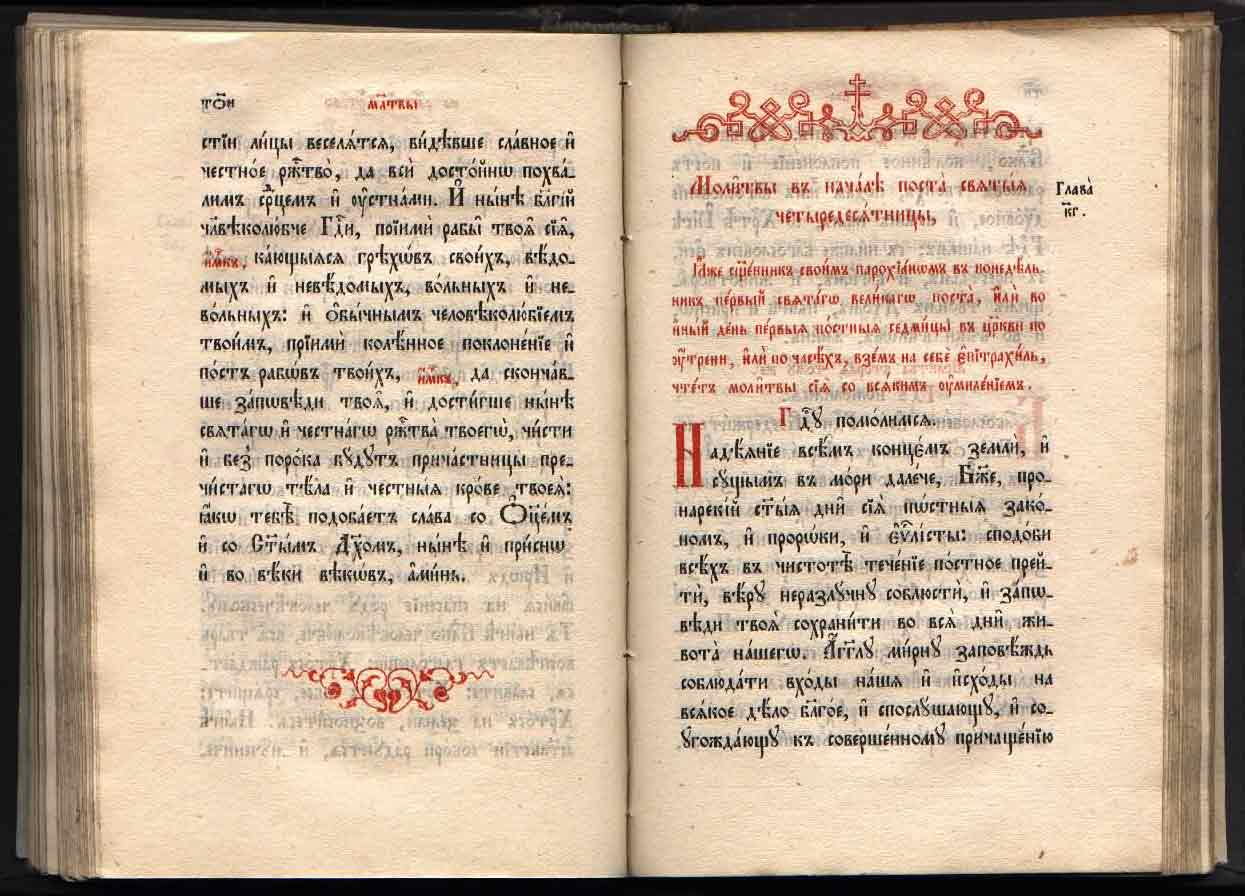 то҃и
мл҃твы
стїи ли́цы веселѧ́тсѧ, ви́дѣвше сла́вное и҆
че́стное ржⷭ҇тво̀, да всѝ досто́йнѡ похва́-
лимъ срⷣцемъ и҆ ᲂу҆стна́ми. И҆ ны́нѣ бл҃гі́й
чл҃вѣколю́бче Гдⷭ҇и, прїимѝ рабы̀ твоѧ̑ сїѧ̑,
и҆мⷬ҇къ, ка́ющыѧсѧ грѣхѡ́въ свои́хъ, вѣ́до-
мыхъ и҆ невѣ́домыхъ, во́льныхъ и҆ не-
во́льныхъ: и҆ ѻ҆бы́чнымъ человѣколю́бїемъ
твои́мъ, прїимѝ колѣ́нное поклоне́нїе и҆
по́стъ рабѡ́въ твои́хъ, и҆мⷬ҇къ, да сконча́в-
ше за́пѡвѣди твоѧ̑, и҆ дости́гше ны́нѣ
свѧта́гѡ и҆ честна́гѡ ржⷭ҇тва̀ твоегѡ̀, чи́сти
и҆ без̾ поро́ка бꙋ́дꙋтъ прича́стницы пре-
чи́стагѡ тѣ́ла и҆ че́стныѧ кро́ве твоеѧ̀:
ꙗ҆́кѡ тебѣ̀ подоба́етъ сла́ва со Ѻ҆ц҃е́мъ
и҆ со Ст҃ы́мъ Дх҃омъ, ны́нѣ и҆ при́снѡ
и҆ во вѣ́ки вѣкѡ́въ, а҆ми́нь.
Моли̑твы въ нача́лѣ поста̀ свѧты́ѧ
четыредесѧ́тницы,
Глава̀
к҃г.
Ꙗ҆̀же сщ҃е́нникъ свои̑мъ парохїа́нѡмъ въ понедѣ́ль-
никъ пе́рвый свѧта́гѡ вели́кагѡ поста̀, и҆лѝ во
и҆́ный де́нь пе́рвыѧ по́стныѧ седми́цы въ цр҃кви по
ᲂу҆́трени, и҆лѝ по часѣ́хъ, взе́мъ на себѐ є҆пїтрахи́ль,
чте́тъ моли̑твы сїѧ̑ со всѧ́кимъ ᲂу҆миле́нїемъ.
Гдⷭ҇ꙋ помо́лимсѧ.
Надѣ́ѧнїе всѣ́мъ конце́мъ землѝ, и҆
сꙋ́щымъ въ мо́ри дале́че, Бж҃е, про-
нареки́й ст҃ы̑ѧ дни̑ сїѧ̑ пѡ́стныѧ зако́-
номъ, и҆ прорѡ́ки, и҆ є҆ѵⷢ҇лі́сты: сподо́би
всѣ́хъ въ чистотѣ̀ тече́нїе по́стное прей-
тѝ, вѣ́рꙋ неразлꙋ́чнꙋ соблюстѝ, и҆ за́пѡ-
вѣди твоѧ̑ сохрани́ти во всѧ̑ дни̑ жи-
вота̀ на́шегѡ. А҆́гг҃лꙋ ми́рнꙋ заповѣ́ждь
соблюда́ти вхо́ды на́шѧ и҆ и҆схо́ды на
всѧ́кое дѣ́ло бл҃го́е, и҆ спослꙋ́шающꙋ, и҆ со-
ᲂугожда́ющꙋ къ соверше́нномꙋ причаще́нїю